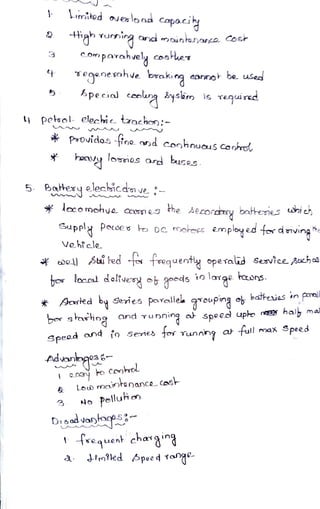 1. Limited overload capacity
2 High running and maintenance cost
3 comparatively costlier
4 regenerative braking cannot be used
5. Special cooling system is required.
4 petrol electric traction:-
* Provides fine and continuous control
* heavy lorries and buses.
5. Battery electric drive :-
* locomotive carries the secondary batteries which
Supply Power to DC motors employed for driving
Vehicle.
* well suited for frequently operated service such as
for local delivery of goods in large towns.
* started by series parallel grouping of batteries in
for starting and running at speed upto half
speed and in series for running at full max speed
Advantages:-
1 easy to control
2 Low maintenance cost
3 No pollution
Disadvantages:-
1 frequent charging
2. limited speed range